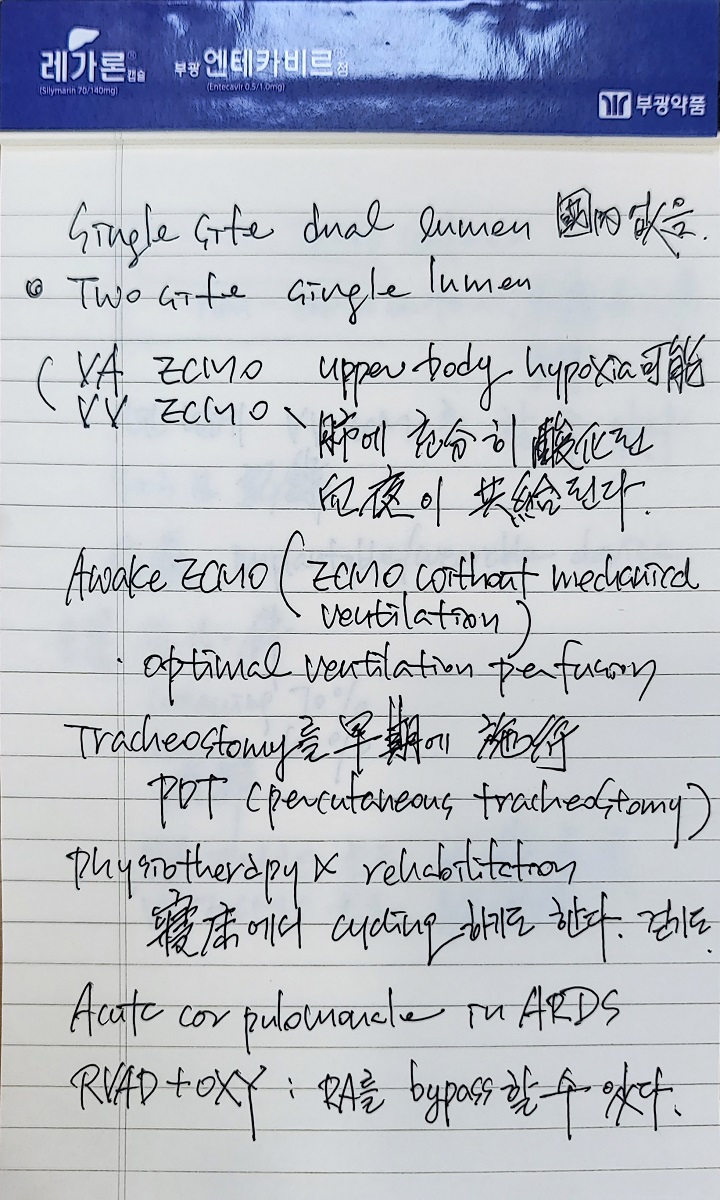 레가론® 캡슐
(Silymarin 70/140mg)
부광 엔테카비르® 정
(Entecavir 0.5/1.0mg)
부광약품
Single site dual lumen 國內 없음.
Two site single lumen
( VA ECMO upper body hypoxia 可能
VV ECMO 肺에 充分히 酸化된
血液이 共給된다.
Awake ECMO ( ECMO without mechanical
ventilation )
· optimal ventilation perfusion
Tracheostomy를 早期에 施行
PDT (percutaneous tracheostomy)
Physiotherapy & rehabilitation
寢床에서 cycling 하기도 한다. 걷기도.
Acute cor pulmonale in ARDS
RVAD + OXY : RA를 bypass 할 수 있다.